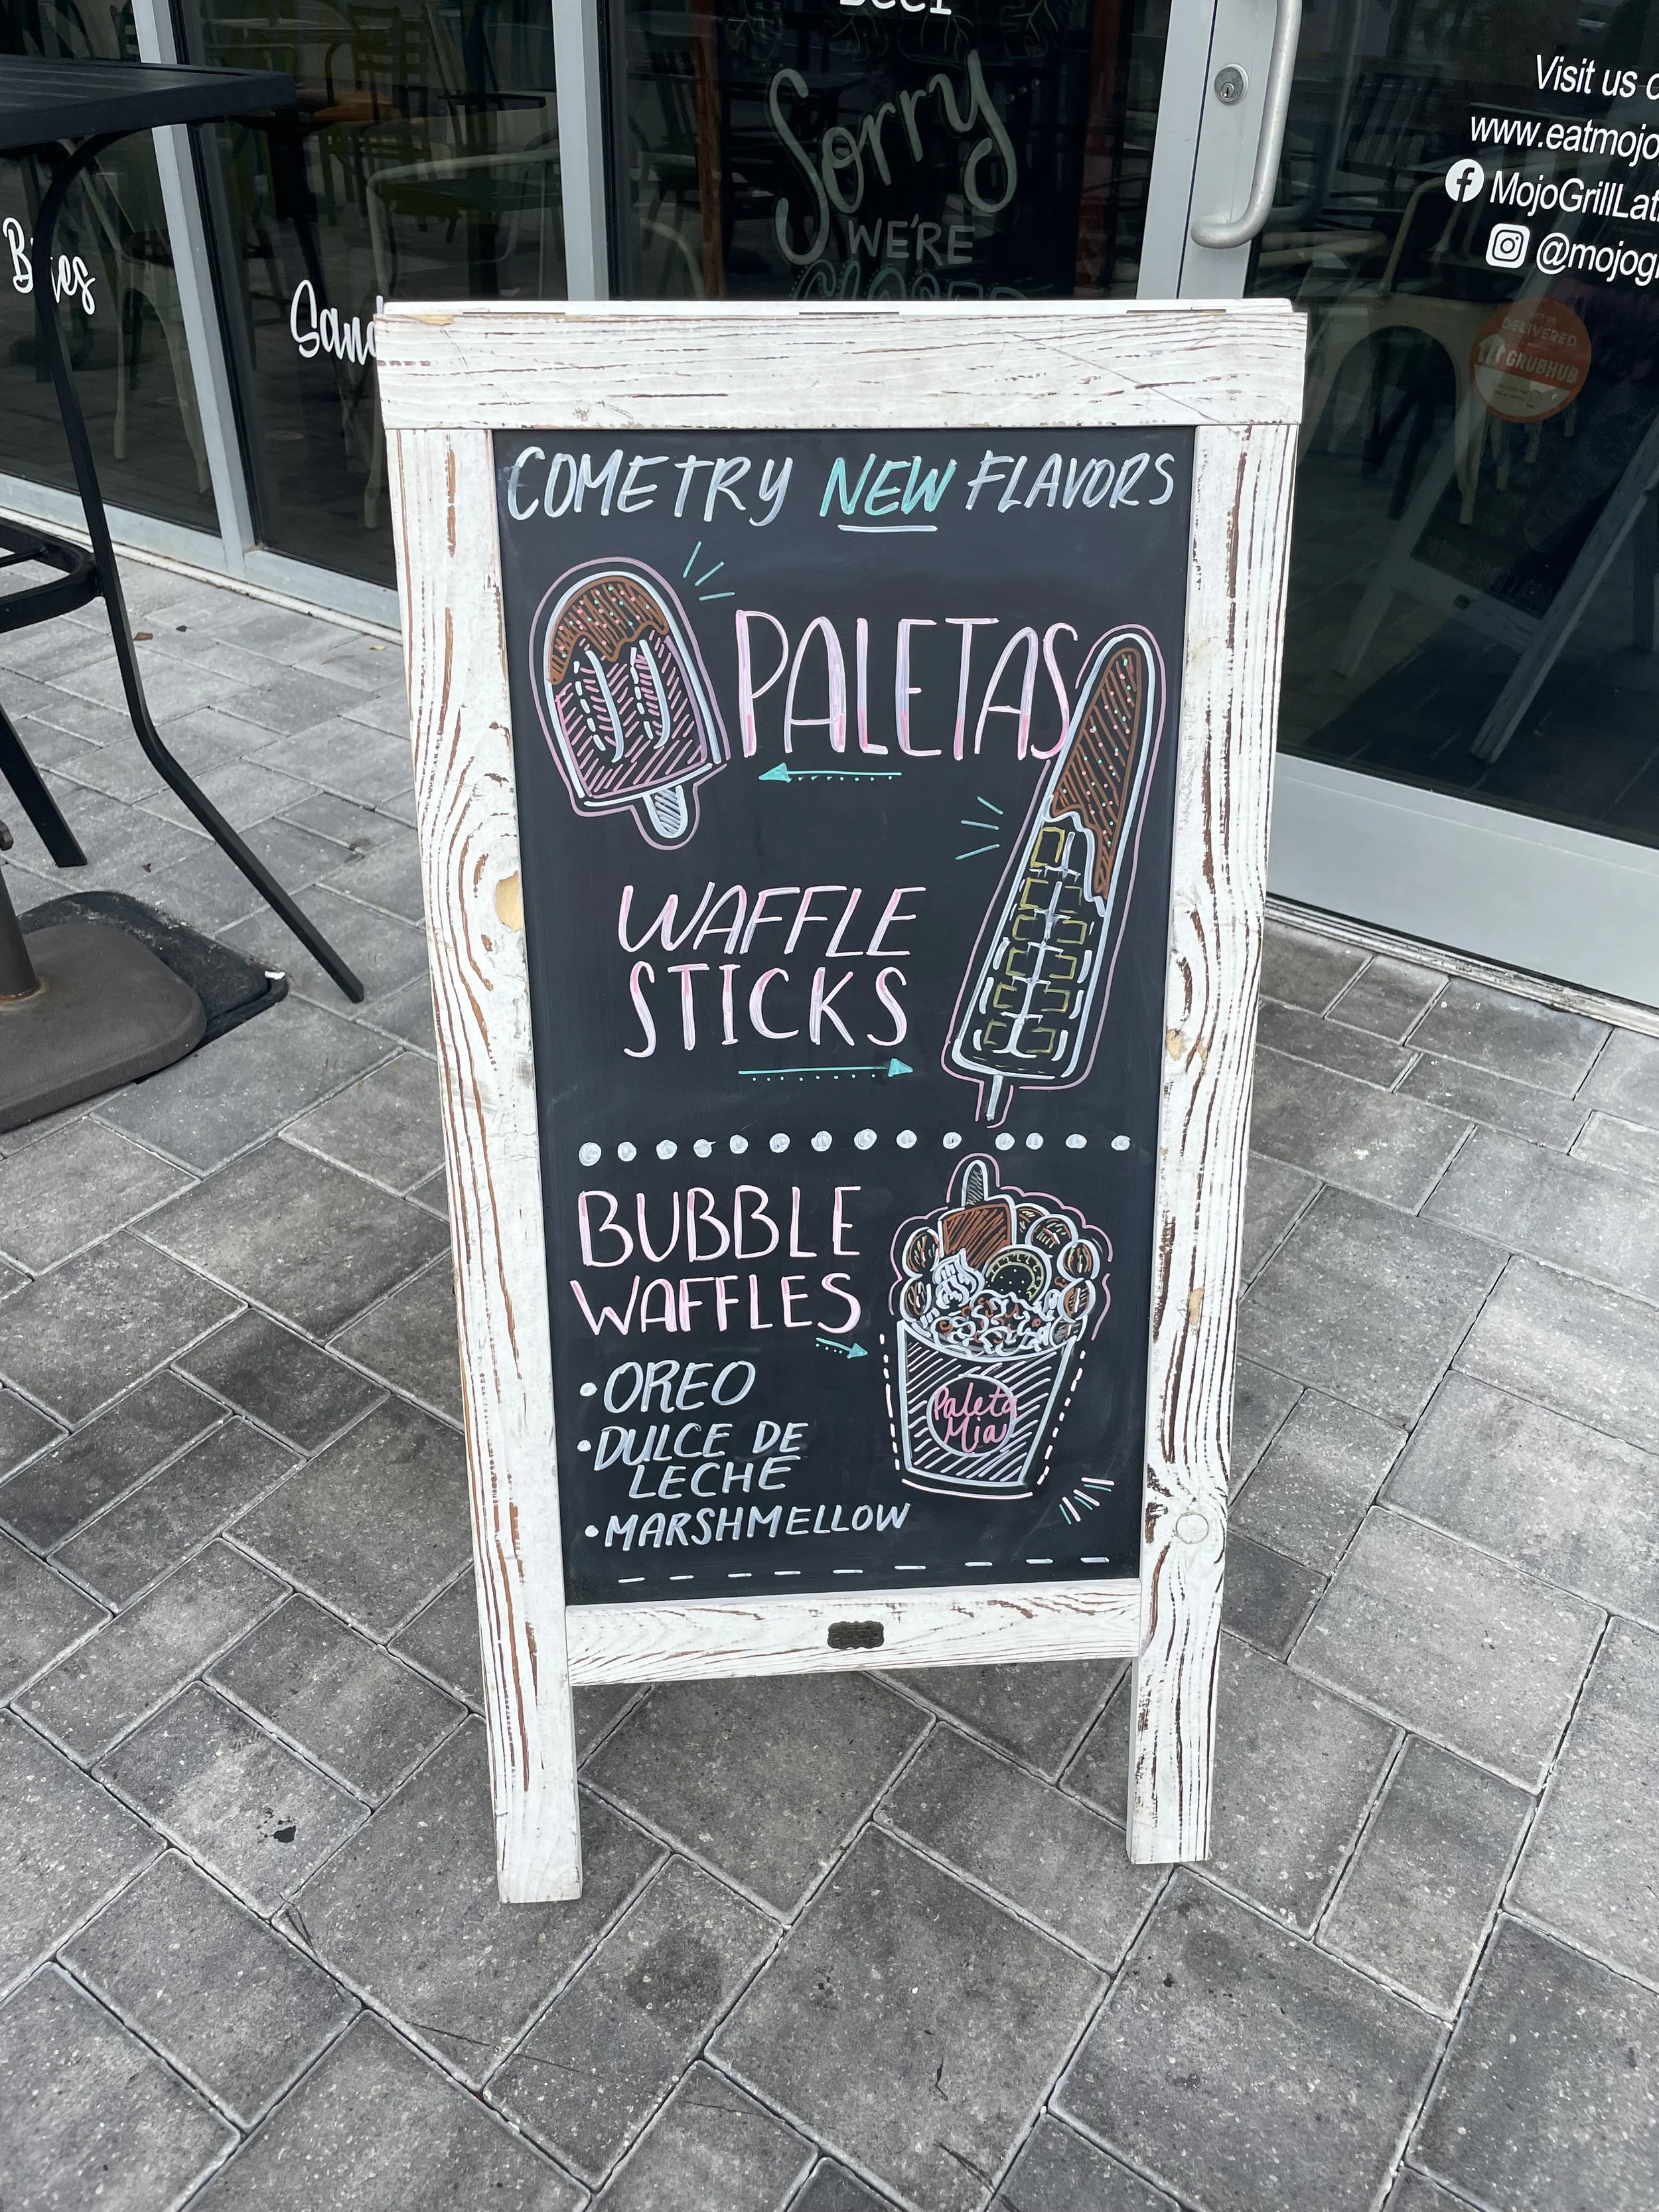 Beer
Sorry
WE'RE
CLOSED
Visit us
www.eatmojo
MojoGrillLat
@mojogr
DELIVERED
GRUBHUB
COME TRY NEW FLAVORS
PALETAS
WAFFLE
STICKS
BUBBLE
WAFFLES
•OREO
•DULCE DE
LECHE
•MARSHMELLOW
Paleta
Mia